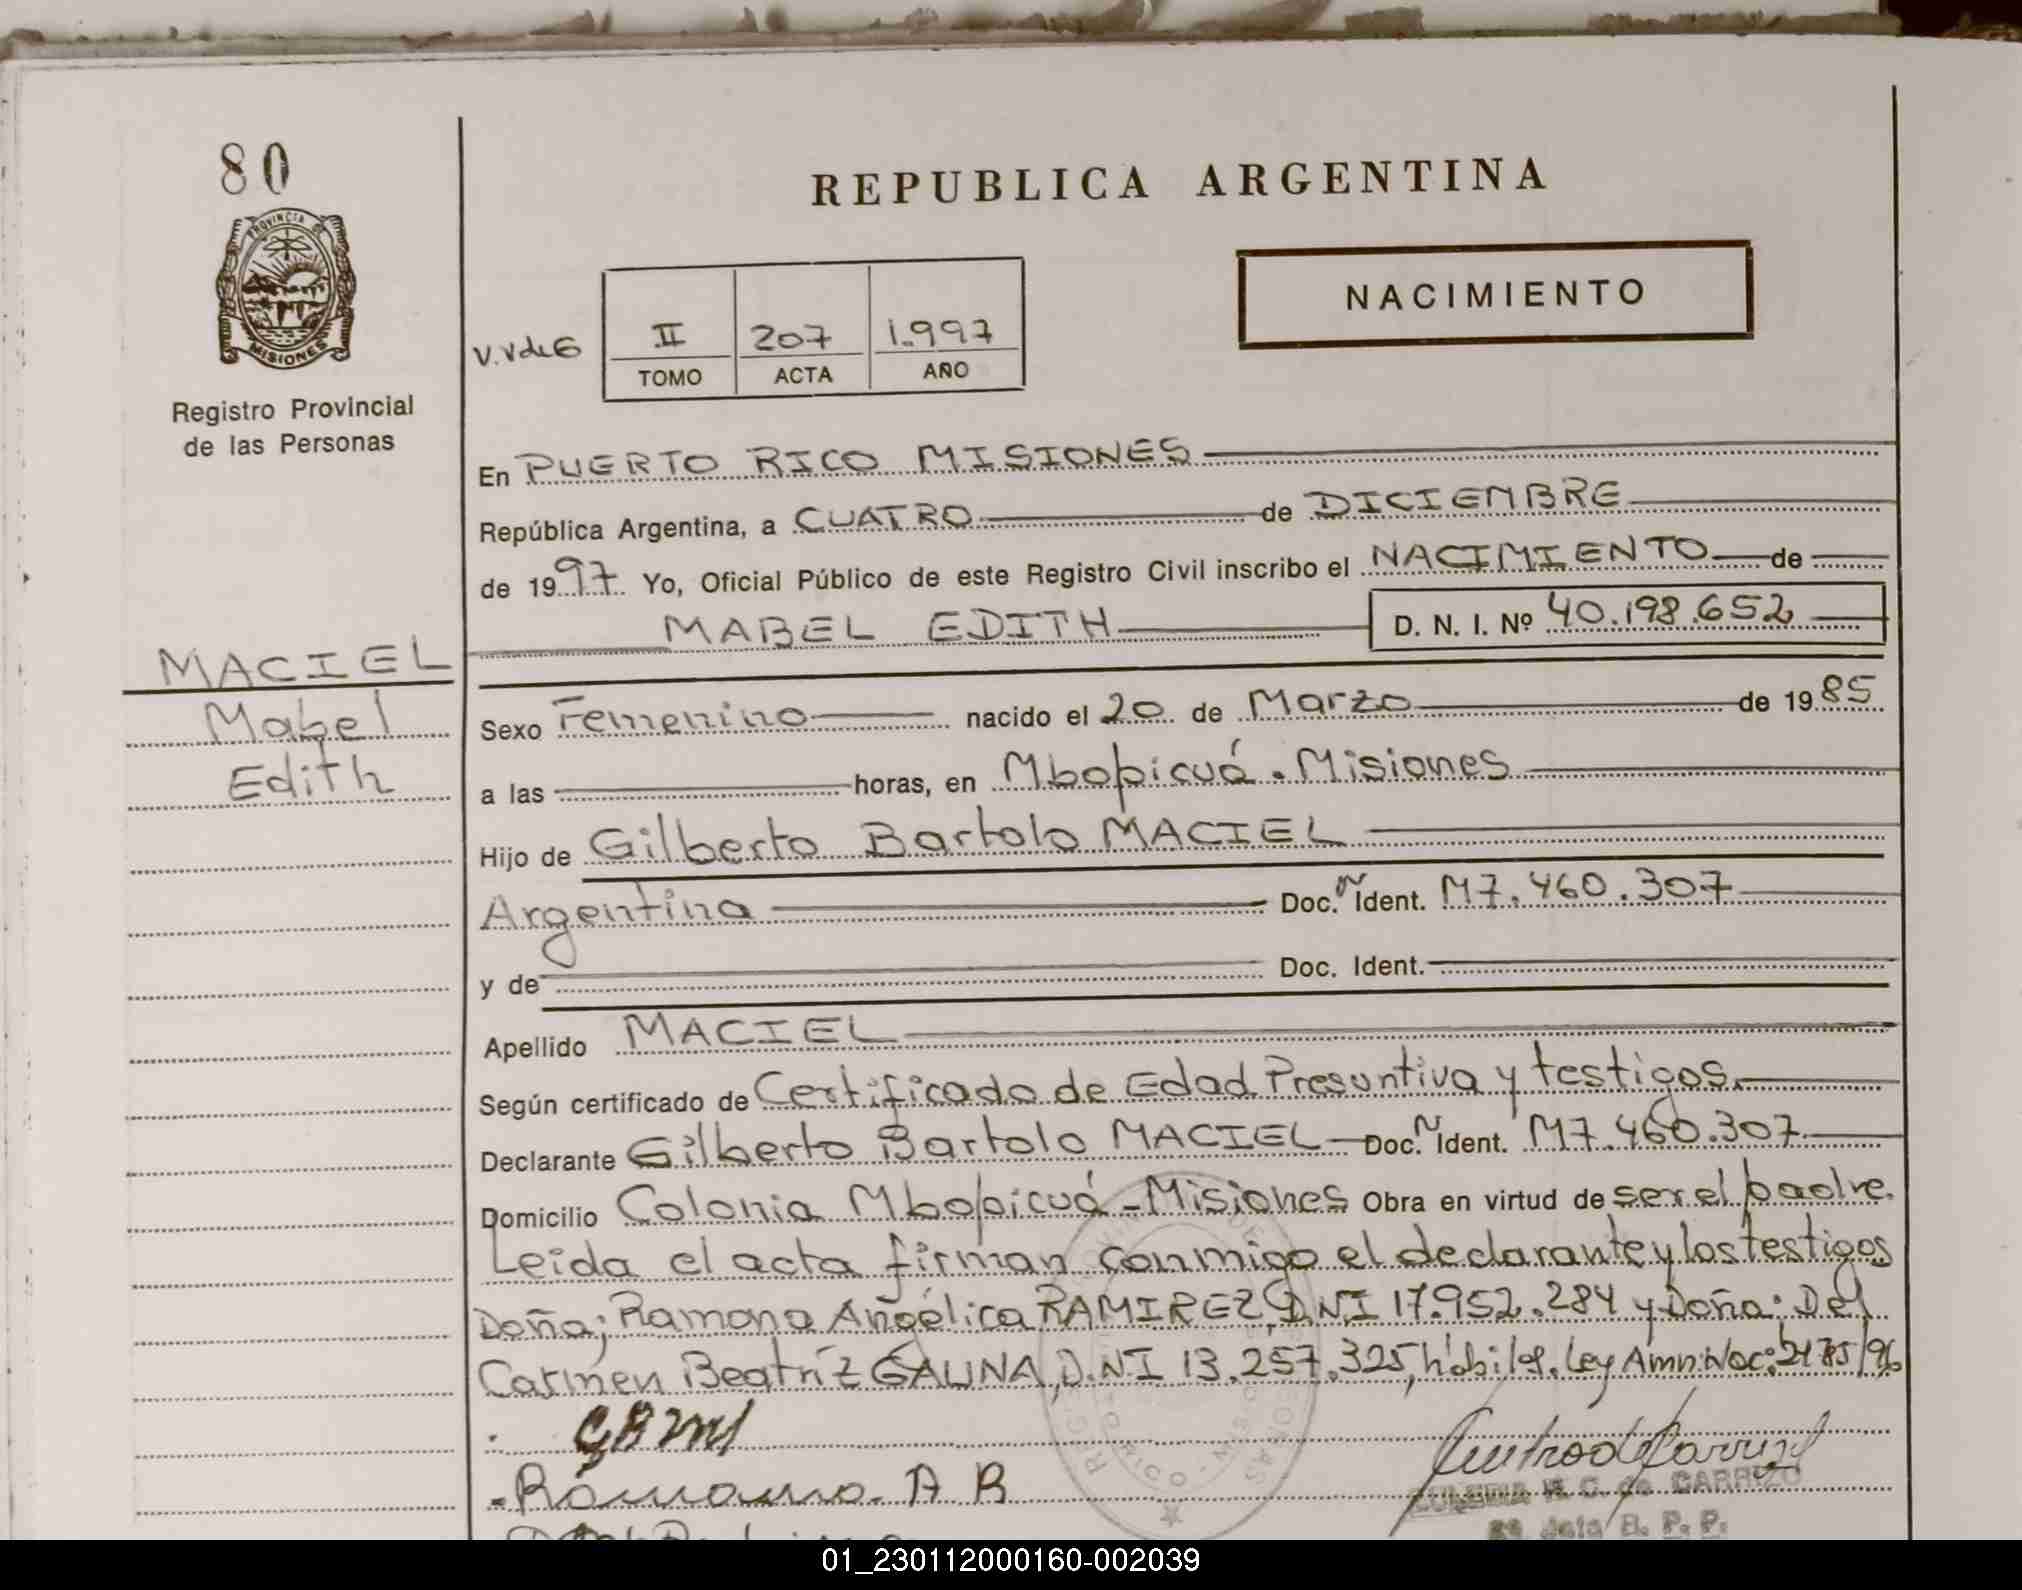 80
PROVINCIA DE
MISIONES
Registro Provincial
de las Personas
REPUBLICA ARGENTINA
NACIMIENTO
V.V de G
II 207 1.997
TOMO ACTA AÑO
En PUERTO RICO MISIONES
República Argentina, a CUATRO de DICIEMBRE
de 1997. Yo, Oficial Público de este Registro Civil inscribo el NACIMIENTO de
MABEL EDITH D. N. I. Nº 40.198.652
MACIEL
Mabel
Edith
Sexo Femenino nacido el 20 de Marzo de 1985
a las horas, en Mbopicuá. Misiones
Hijo de Gilberto Bartolo MACIEL
Argentina Doc. Ident. M7.460.307
y de Doc. Ident.
Apellido MACIEL
Según certificado de Certificado de Edad Presuntiva y testigos.
Declarante Gilberto Bartolo MACIEL Doc. Ident. M7.460.307
Domicilio Colonia Mbopicuá - Misiones Obra en virtud de ser el padre.
Leida el acta firman conmigo el declarante y los testigos
Doña; Ramona Angélica RAMIREZ, D.N.I 17.952.284 y Doña: Del
Carmen Beatríz GAUNA, D.N.I 13.257.325, hábiles. Ley Amn. Nac: 24785/96
GBM
Ramona A R
ZULEMA R. C. de CARRIZO
R. P. P.
01_230112000160-002039